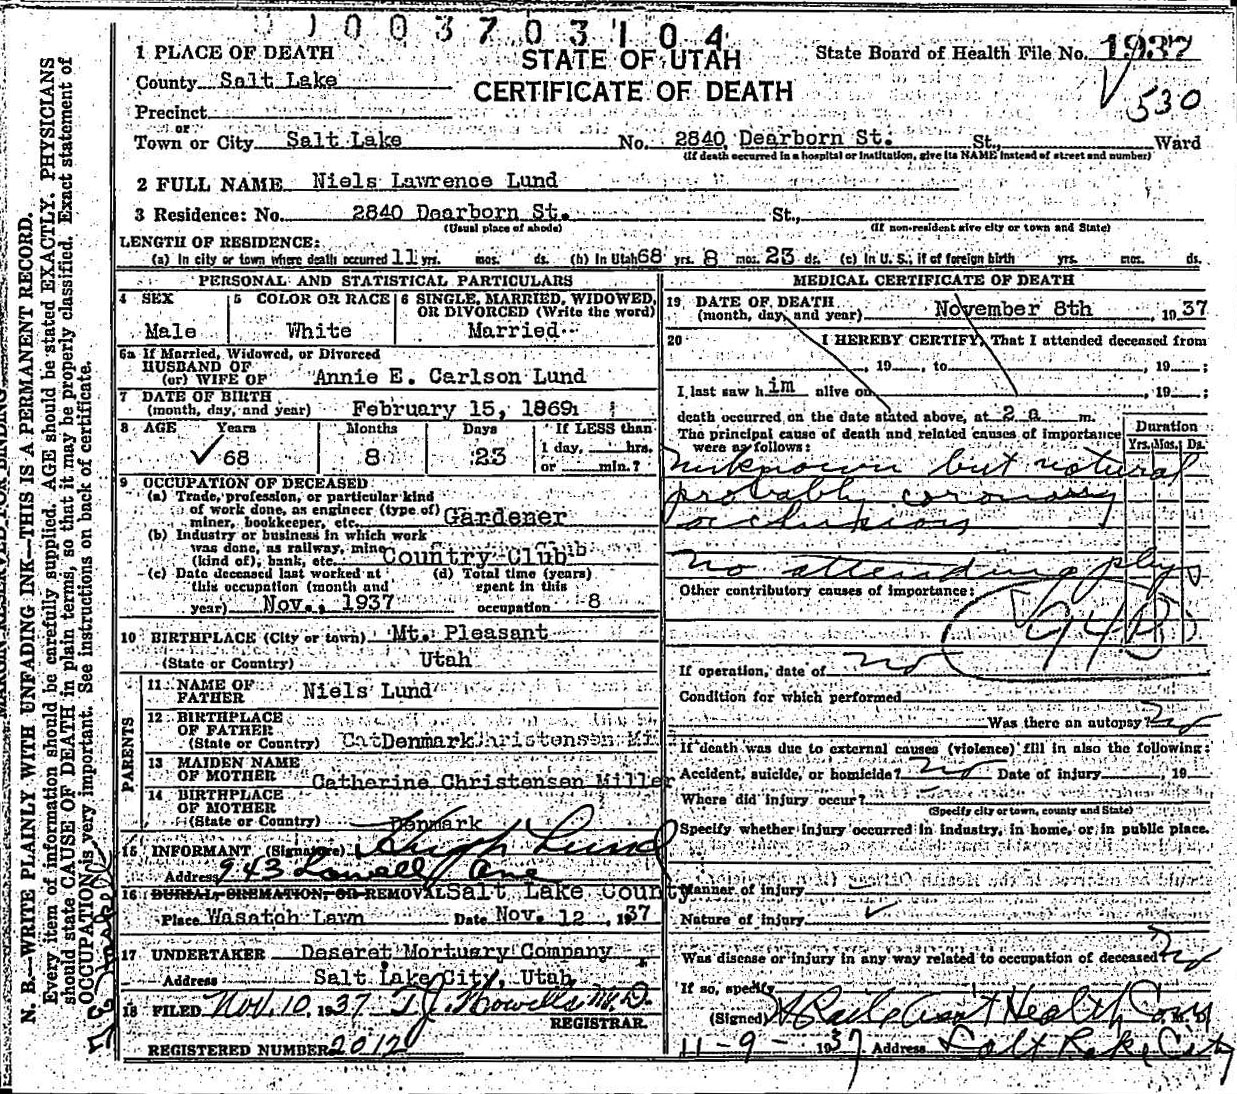 003703104
1 PLACE OF DEATH
STATE OF UTAH
State Board of Health File No. 1937
County Salt Lake
CERTIFICATE OF DEATH
530
Precinct
or
Town or City Salt Lake No. 2840 Dearborn St. St., Ward
(If death occurred in a hospital or institution, give its NAME instead of street and number)
2 FULL NAME Niels Lawrence Lund
3 Residence: No. 2840 Dearborn St. St.,
(Usual place of abode) (If non-resident give city or town and State)
LENGTH OF RESIDENCE:
(a) In city or town where death occurred 11 yrs. mos. ds. (b) In Utah 68 yrs. 8 mos. 23 ds. (c) In U. S., if of foreign birth yrs. mos. ds.
PERSONAL AND STATISTICAL PARTICULARS
4 SEX 5 COLOR OR RACE 6 SINGLE, MARRIED, WIDOWED,
OR DIVORCED (Write the word)
Male White Married
6a If Married, Widowed, or Divorced
HUSBAND OF
(or) WIFE OF Annie E. Carlson Lund
7 DATE OF BIRTH
(month, day, and year) February 15, 1869
8 AGE Years Months Days If LESS than
1 day, hrs.
68 8 23
or min.?
9 OCCUPATION OF DECEASED
(a) Trade, profession, or particular kind
of work done, as engineer (type of)
miner, bookkeeper, etc. Gardener
(b) Industry or business in which work
was done, as railway, mine
(kind of), bank, etc. Country Club
(c) Date deceased last worked at (d) Total time (years)
this occupation (month and spent in this
year) Nov., 1937 occupation 8
10 BIRTHPLACE (City or town) Mt. Pleasant
(State or Country) Utah
PARENTS
11 NAME OF
FATHER Niels Lund
12 BIRTHPLACE
OF FATHER
(State or Country) Denmark
13 MAIDEN NAME
OF MOTHER Catherine Christensen Miller
14 BIRTHPLACE
OF MOTHER
(State or Country) Denmark
15 INFORMANT (Signature) Hugh Lund
Address 943 Lowell Ave
16 BURIAL, CREMATION, OR REMOVAL Salt Lake County
Place Wasatch Lawn Date Nov. 12, 1937
17 UNDERTAKER Deseret Mortuary Company
Address Salt Lake City, Utah
18 FILED Nov. 10, 1937 T. J. Howells M.D.
REGISTRAR
REGISTERED NUMBER 2012
MEDICAL CERTIFICATE OF DEATH
19 DATE OF DEATH
(month, day, and year) November 8th, 1937
20 I HEREBY CERTIFY, That I attended deceased from
, 19 , to , 19 ;
I last saw him alive on , 19 ;
death occurred on the date stated above, at 2 a m.
The principal cause of death and related causes of importance
were as follows:
Duration
Yrs. Mos. Ds.
unknown but natural
probably coronary
occlusion
No attending phys
Other contributory causes of importance:
94B
If operation, date of no
Condition for which performed
Was there an autopsy? No
If death was due to external causes (violence) fill in also the following:
Accident, suicide, or homicide? no Date of injury , 19
Where did injury occur?
(Specify city or town, county and State)
Specify whether injury occurred in industry, in home, or in public place.
Manner of injury
Nature of injury
Was disease or injury in any way related to occupation of deceased? No
If so, specify
(Signed) Health
11-9- 1937 Address Salt Lake City
N. B.—WRITE PLAINLY WITH UNFADING INK—THIS IS A PERMANENT RECORD.
Every item of information should be carefully supplied. AGE should be stated EXACTLY. PHYSICIANS
should state CAUSE OF DEATH in plain terms, so that it may be properly classified. Exact statement of
OCCUPATION is very important. See instructions on back of certificate.